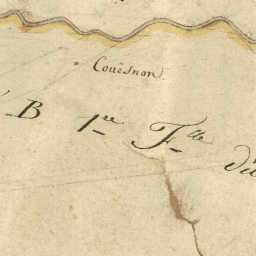 Couësnon.
B 1re Flle du